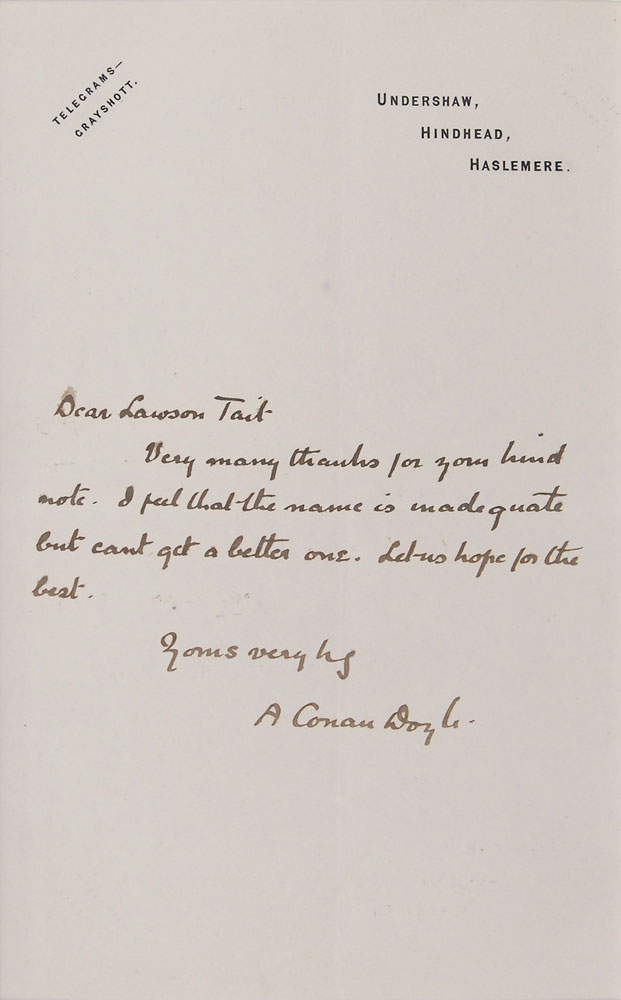 TELEGRAMS—
GRAYSHOTT.
UNDERSHAW,
HINDHEAD,
HASLEMERE.
Dear Lawson Tait
Very many thanks for your kind
note. I feel that the name is inadequate
but cant get a better one. Let us hope for the
best.
Yours very
A Conan Doyle.